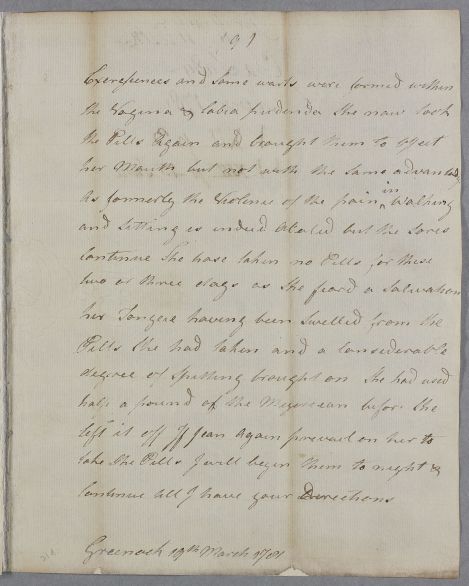 91
Excresences and some warts were formed within
the Vagina & labia pudenda She now took
the Pills Again and brought them to affect
her Mouth but not with the same advantage
As formerly the Violence of the pain in Walking
and Sitting is indeed Abated but the Sores
Continue She hase taken no Pills for these
two or three days as She feard a Salivation
her Tongue having been Swelled from the
Pills She had taken and a Considerable
degree of Spitting brought on She had used
half a pound of the before She
left it off If I can Again prevail on her to
take the Pills I will begin them to night &
Continue till I have your Directions
Greenock 19th March 1781